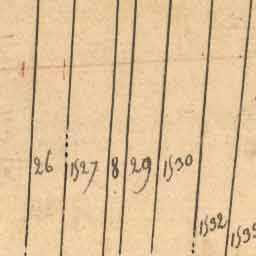 26 1527 8 29 1530
1532